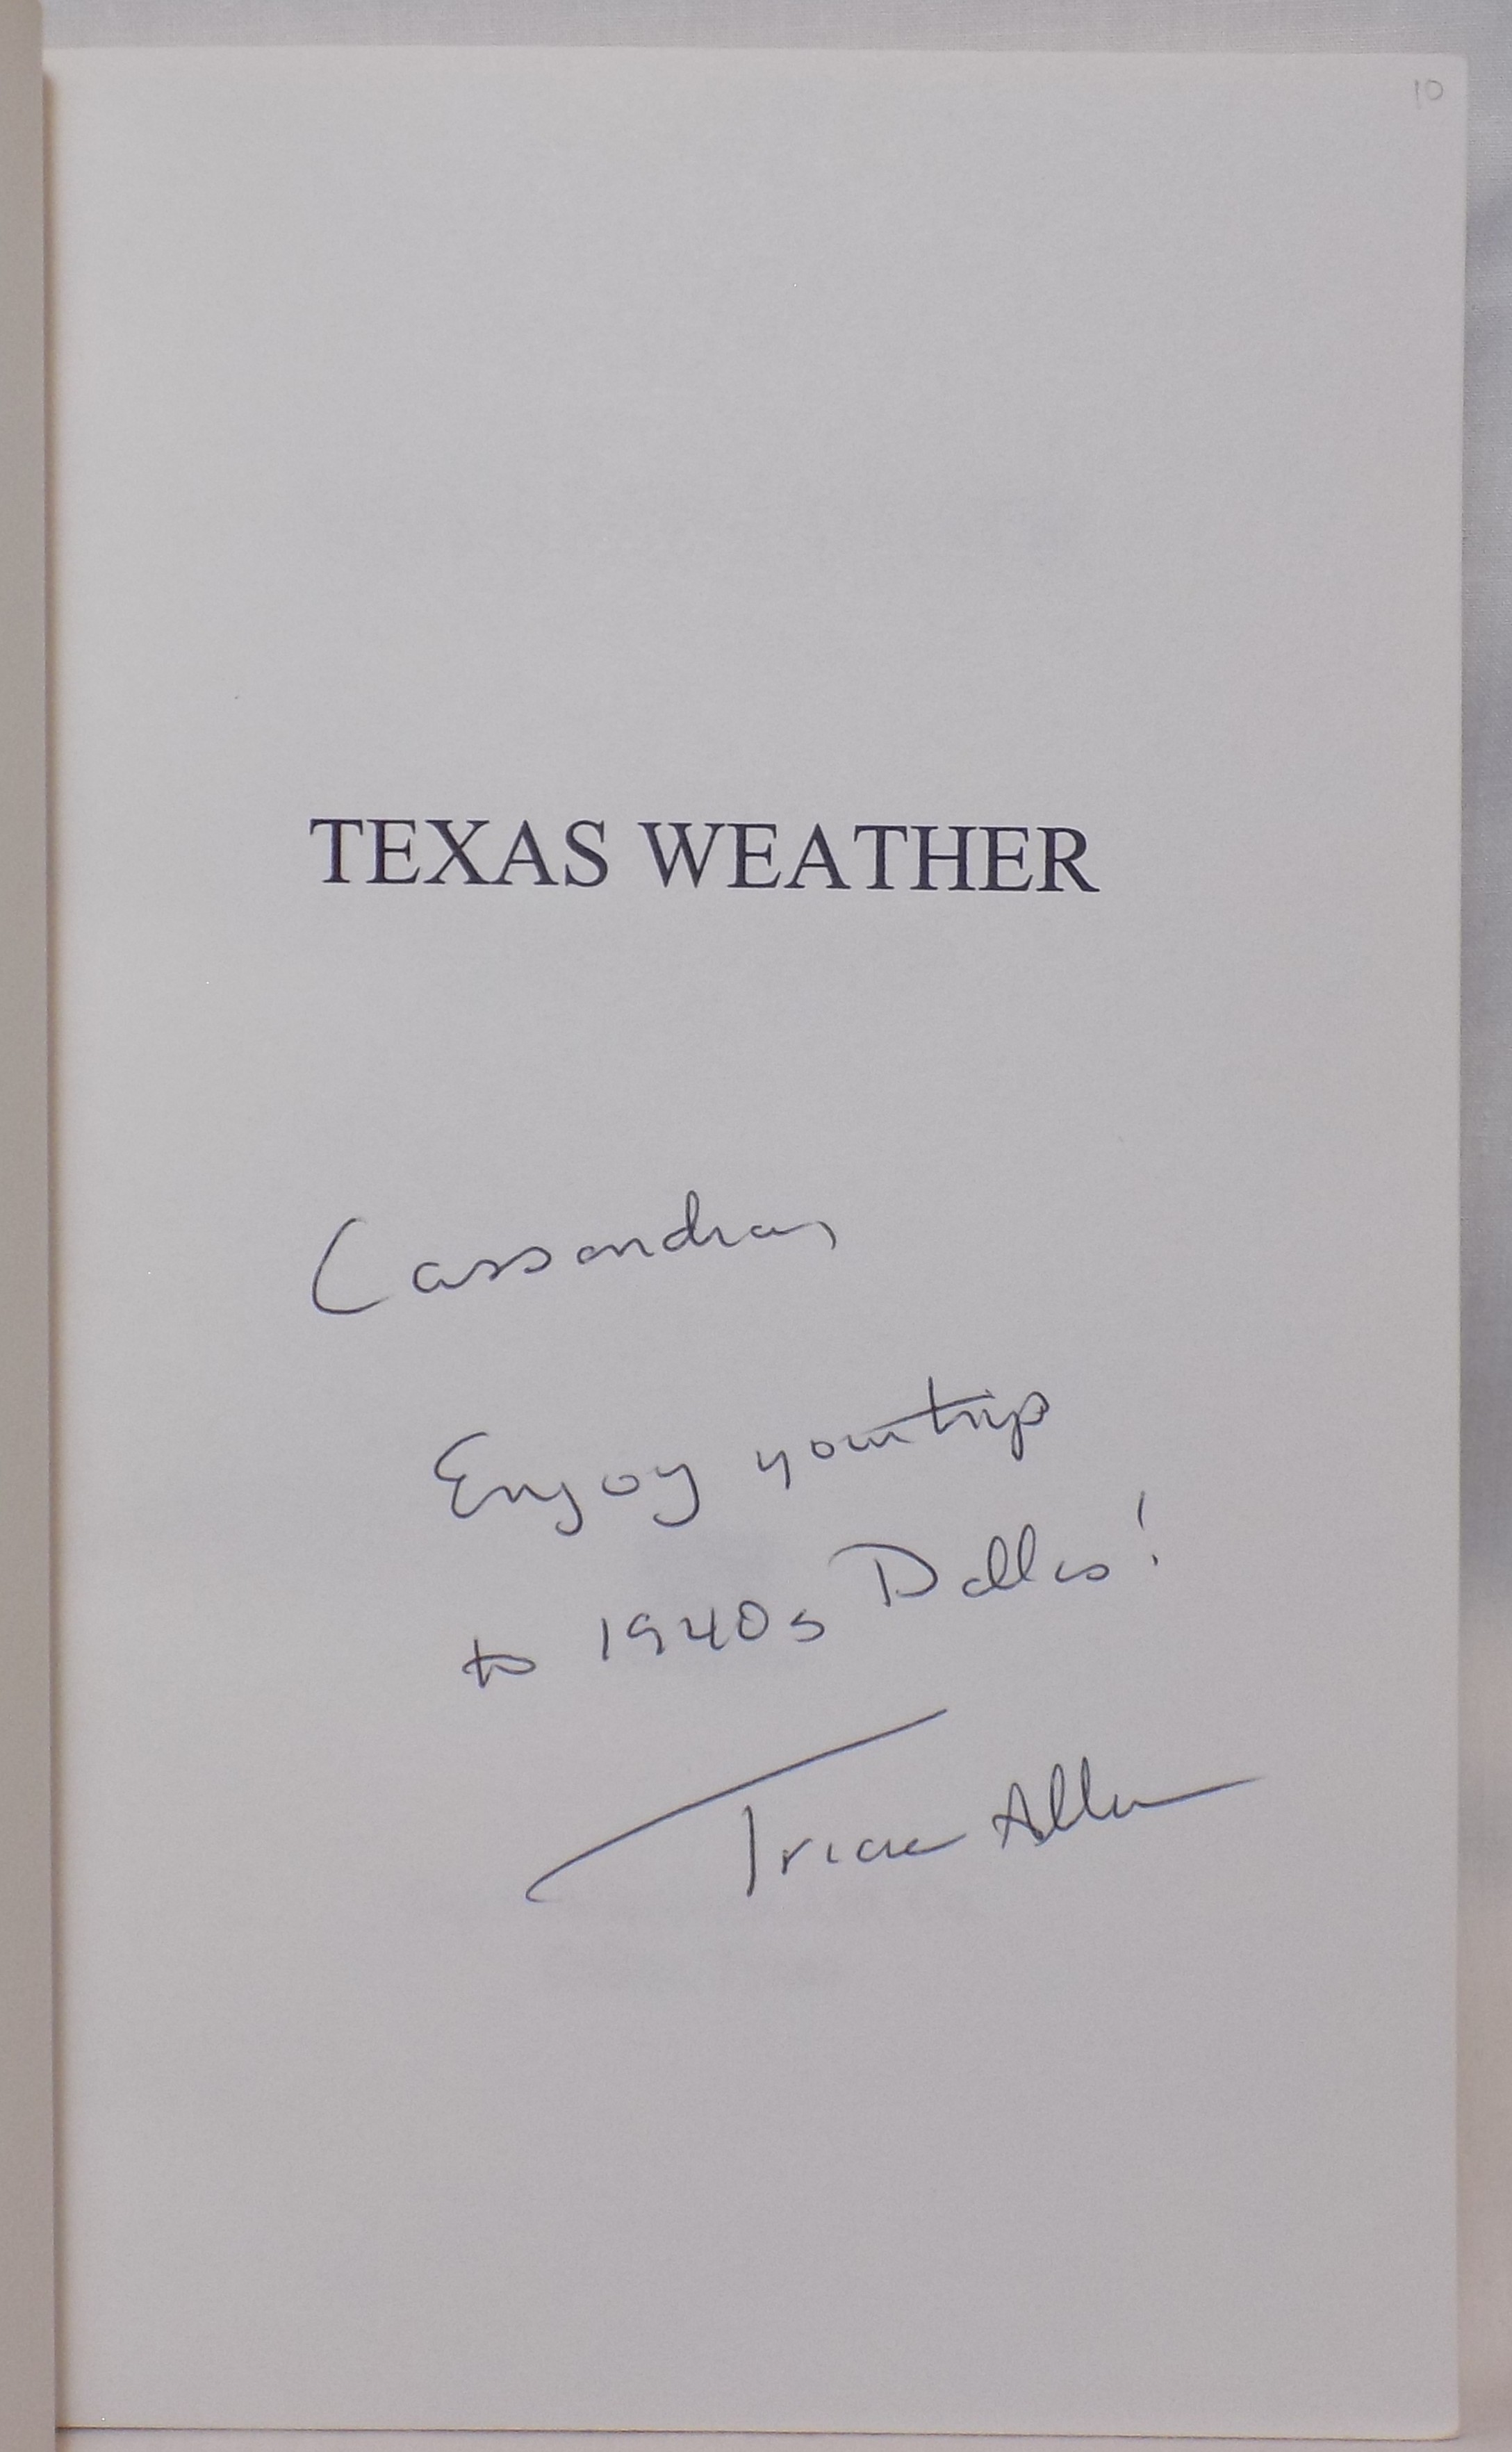 10
TEXAS WEATHER
Cassandra,
Enjoy your trip
to 1940s Dallas!
Tricia Allen